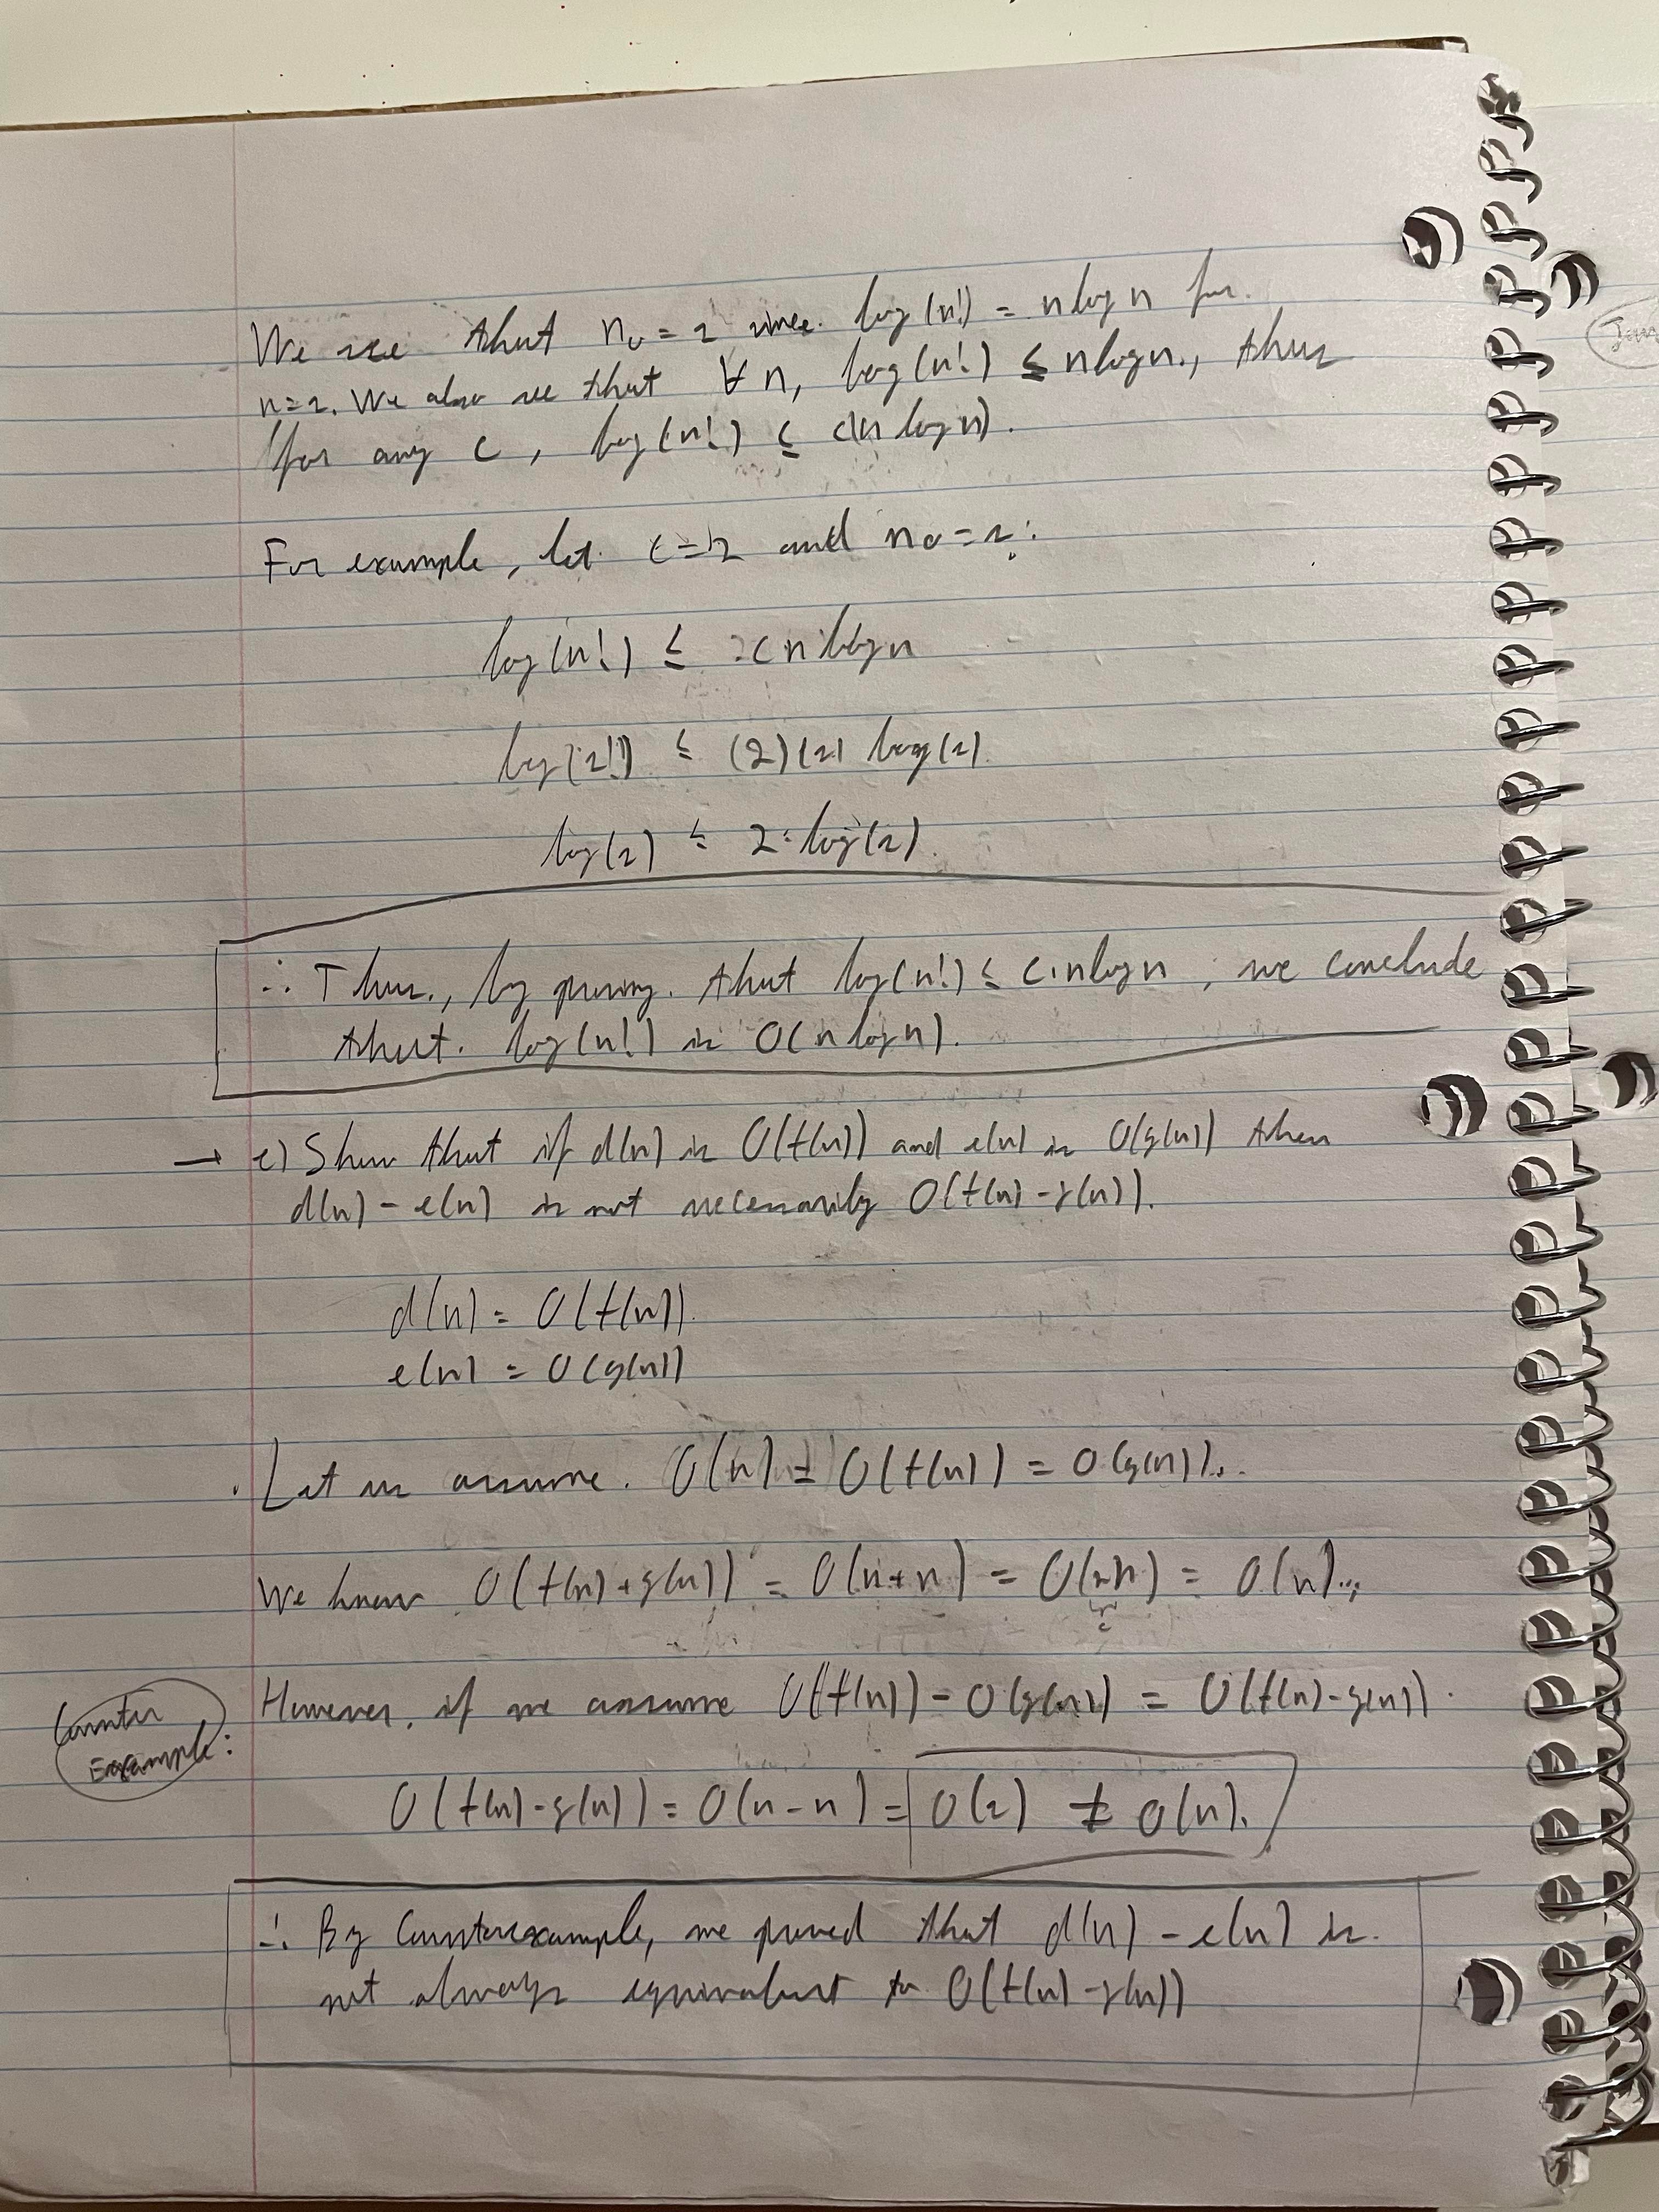 We see that n₀ = 1 since log(n!) = n log n for
n=1. We also see that ∀ n, log(n!) ≤ n log n, thus
for any c, log(n!) ≤ c(n log n).
For example, let c=2 and n₀=1:
log(n!) ≤ c n log n
log(1!) ≤ (2)(1) log(1)
log(1) ≤ 2·log(1)
∴ Thus, by proving that log(n!) ≤ c·n log n, we conclude
that log(n!) is O(n log n).
→ e) Show that if d(n) is O(f(n)) and e(n) is O(g(n)) then
d(n) - e(n) is not necessarily O(f(n) - g(n)).
d(n) = O(f(n))
e(n) = O(g(n))
Let us assume O(n) = O(f(n)) = O(g(n)).
We know O(f(n)+g(n)) = O(n+n) = O(2n) = O(n)
c
However, if we assume O(f(n)) - O(g(n)) = O(f(n)-g(n))
Counter
Example:
O(f(n)-g(n)) = O(n-n) = O(1) ≠ O(n).
∴ By Counterexample, we proved that d(n) - e(n) is
not always equivalent to O(f(n) - g(n))